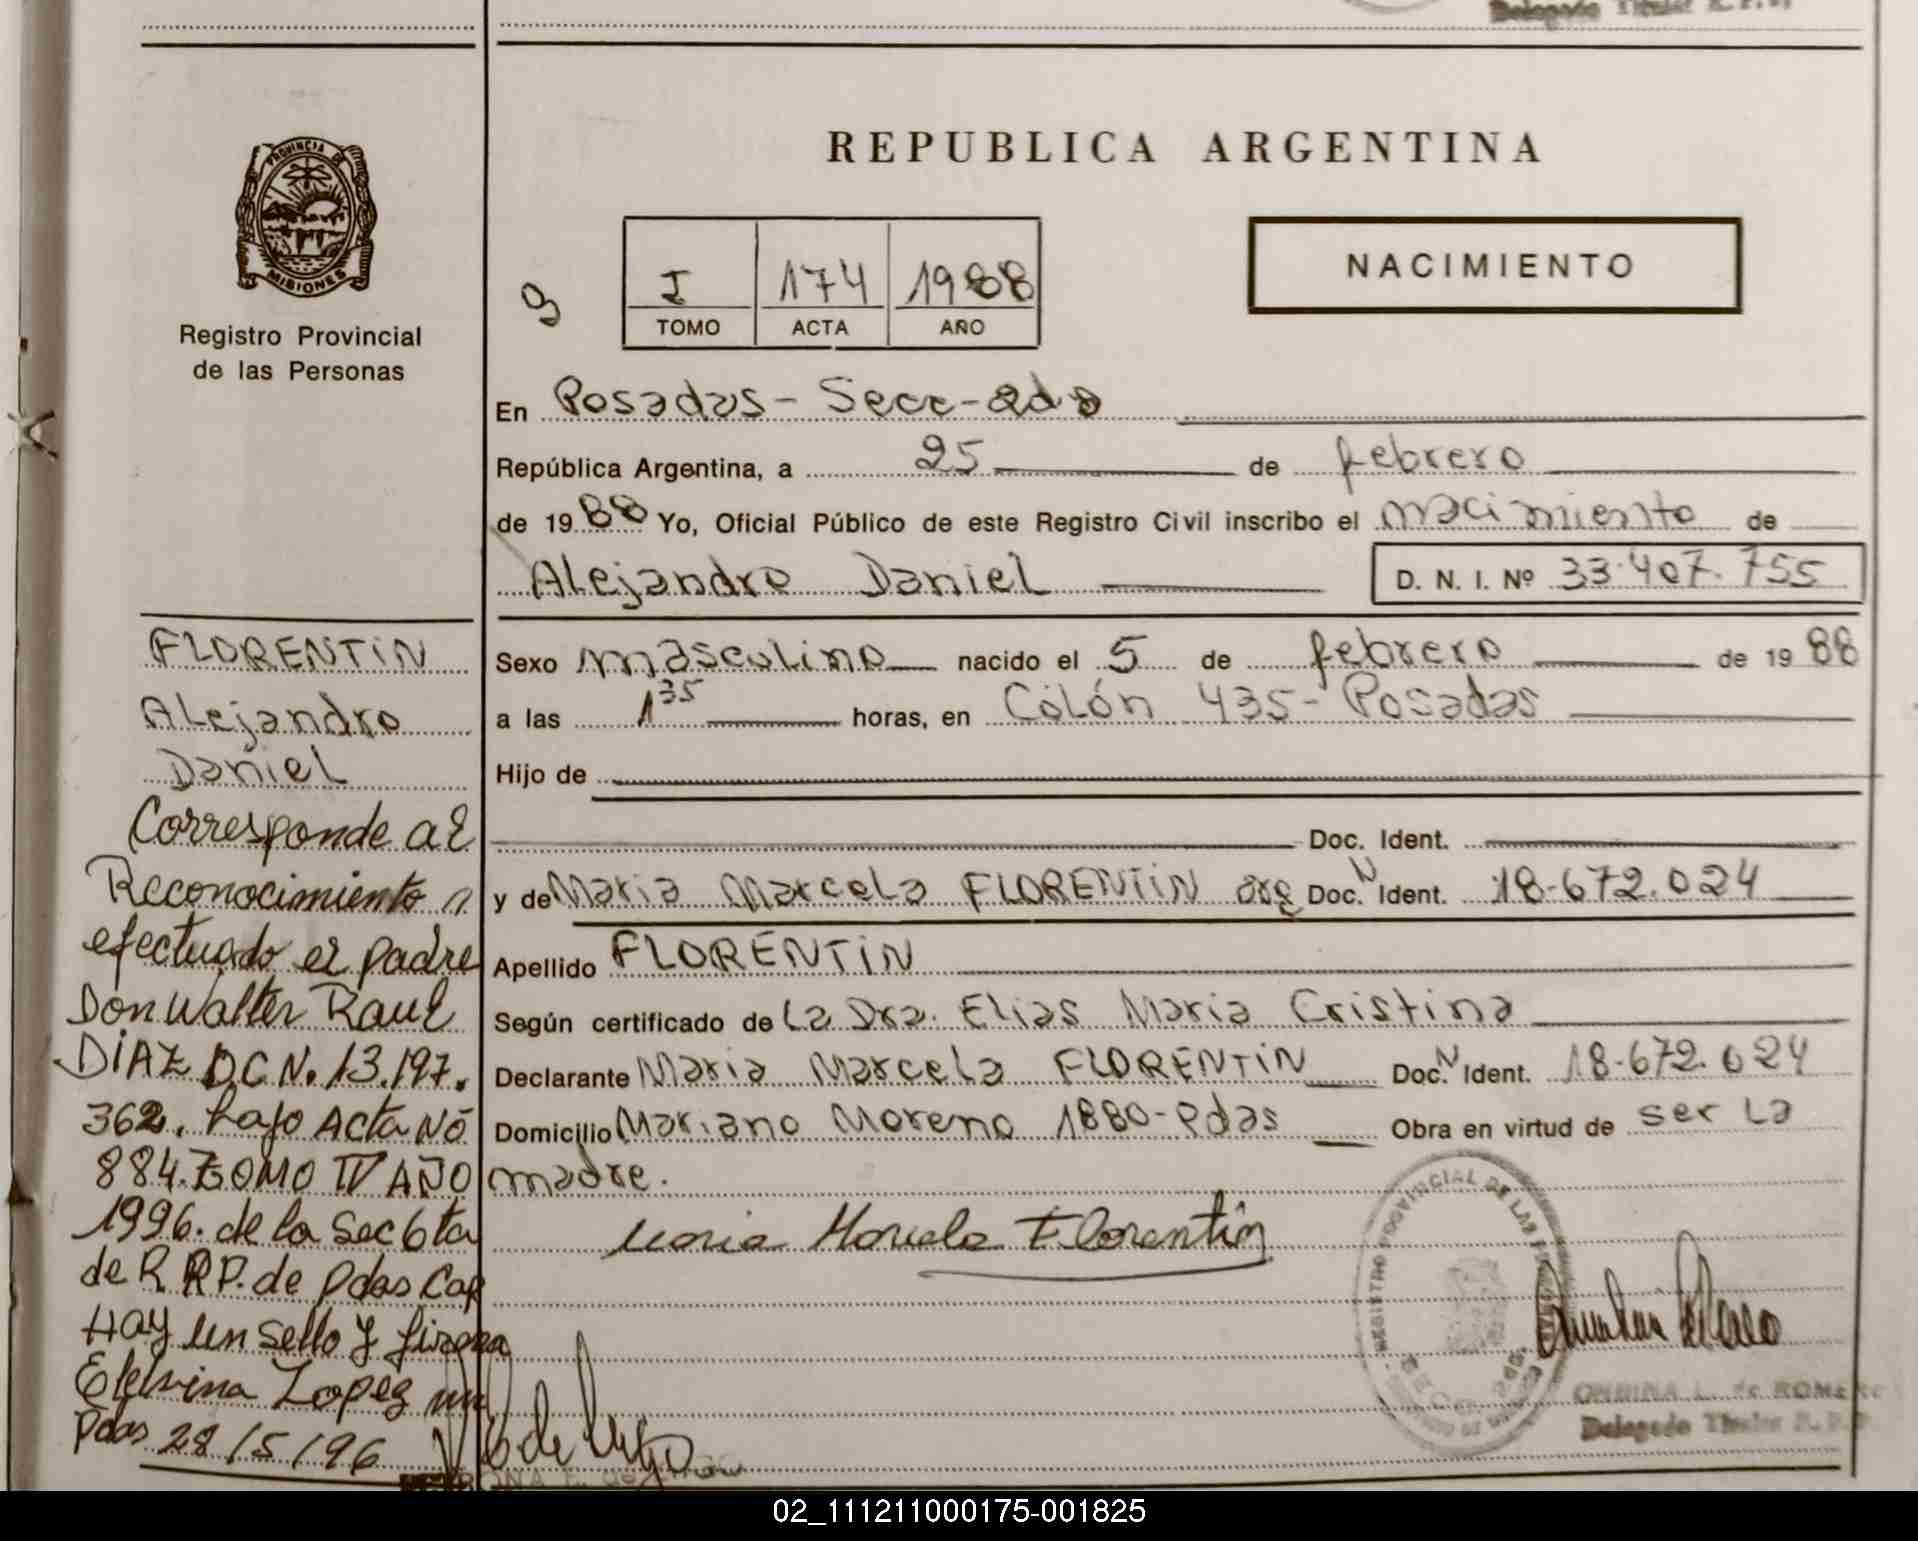 Delegado Titular R.P.P.
PROVINCIA DE
MISIONES
Registro Provincial
de las Personas
REPUBLICA ARGENTINA
I 174 1988
TOMO ACTA AÑO
NACIMIENTO
En Posadas - Secc - 2da
República Argentina, a 25 de febrero
de 1988 Yo, Oficial Público de este Registro Civil inscribo el nacimiento de
Alejandro Daniel D. N. I. Nº 33.407.755
Sexo masculino nacido el 5 de febrero de 1988
a las 1 35 horas, en Colón 435 - Posadas
Hijo de
Doc. Ident.
y de Maria Marcela FLORENTIN arg Doc. N Ident. 18.672.024
Apellido FLORENTIN
Según certificado de La Dra. Elias Maria Cristina
Declarante Maria Marcela FLORENTIN Doc. N Ident. 18.672.024
Domicilio Mariano Moreno 1880 - Pdas Obra en virtud de ser la
madre.
Maria Marcela Florentin
FLORENTIN
Alejandro
Daniel
Corresponde al
Reconocimiento
efectuado el padre
Don Walter Raul
DIAZ D.C N. 13.197.
362. bajo Acta Nº
884. TOMO IV AÑO
1996. de la Sec 6ta
de R RP. de Pdas Cap
Hay un sello y firma
Etelvina Lopez
Pdas 28/5/96
REGISTRO PROVINCIAL DE LAS
ONDINA L. de ROMERO
Delegado Titular R.P.P.
02_111211000175-001825